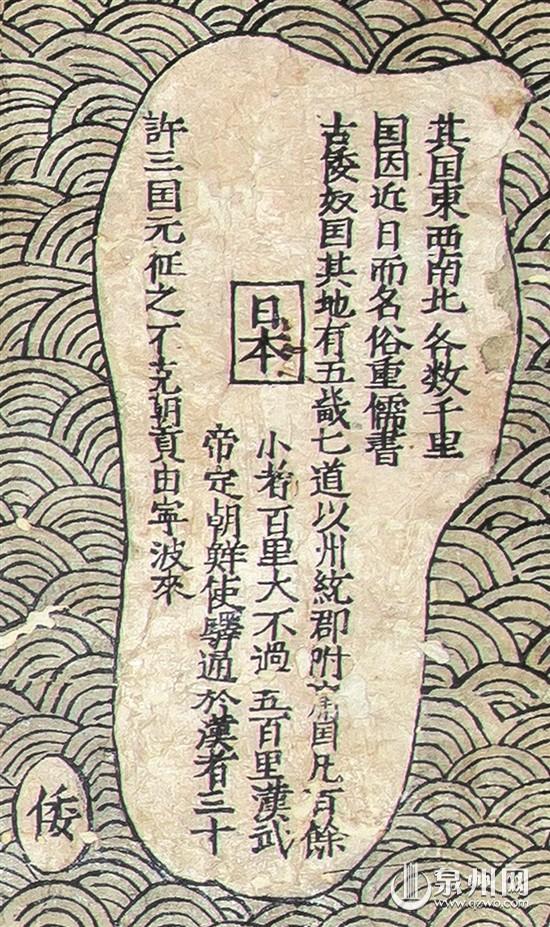 其国東西南北各数千里
国因近日而名俗重儒書
古倭奴国其地有五畿七道以州統郡附庸国凡百餘
日本
小者百里大不過五百里漢武
帝定朝鮮使驛通於漢者三十
許三国元征之不克朝貢由寧波來
倭
泉州网
www.qzwb.com